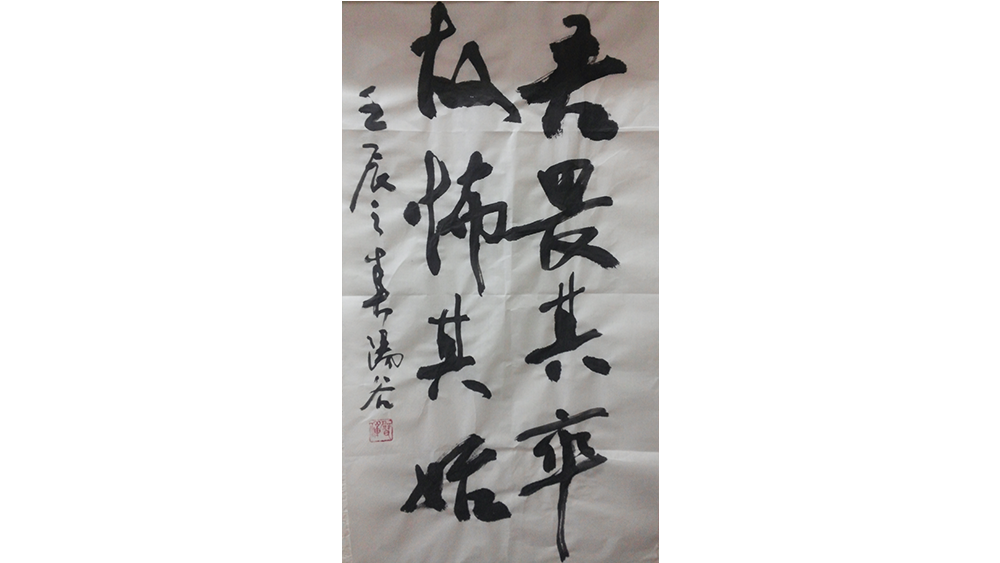 吾畏其卒
故怖其始
壬辰之春湯谷